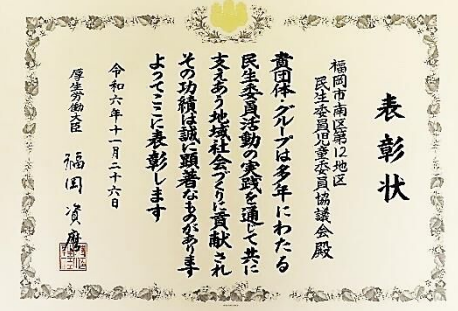 表彰状
福岡市南区第12地区
民生委員児童委員協議会殿
貴団体・グループは多年にわたる
民生委員活動の実践を通じて共に
支えあう地域社会づくりに貢献され
その功績は誠に顕著なものがあります
よってここに表彰します
令和六年十一月二十六日
厚生労働大臣
福岡資麿